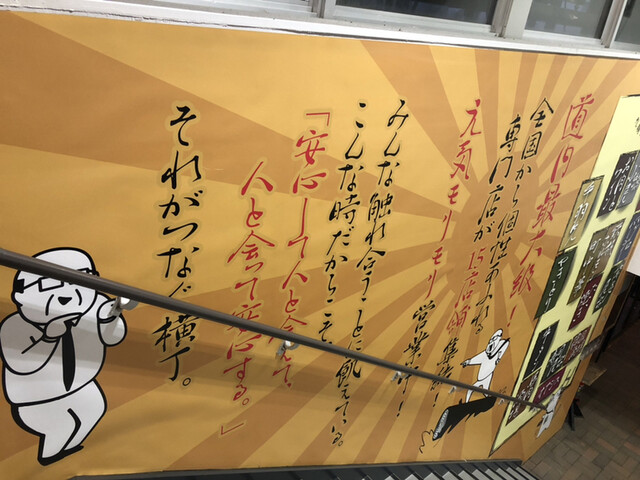 道内最大級!
全国から個性あふれる
専門店が15店舗集結!
元気モリモリ営業中!
みんな触れ合うことに飢えている。
こんな時だからこそ、
「安心して人と会えて、
人と会って安心する。」
それがつなぐ横丁。